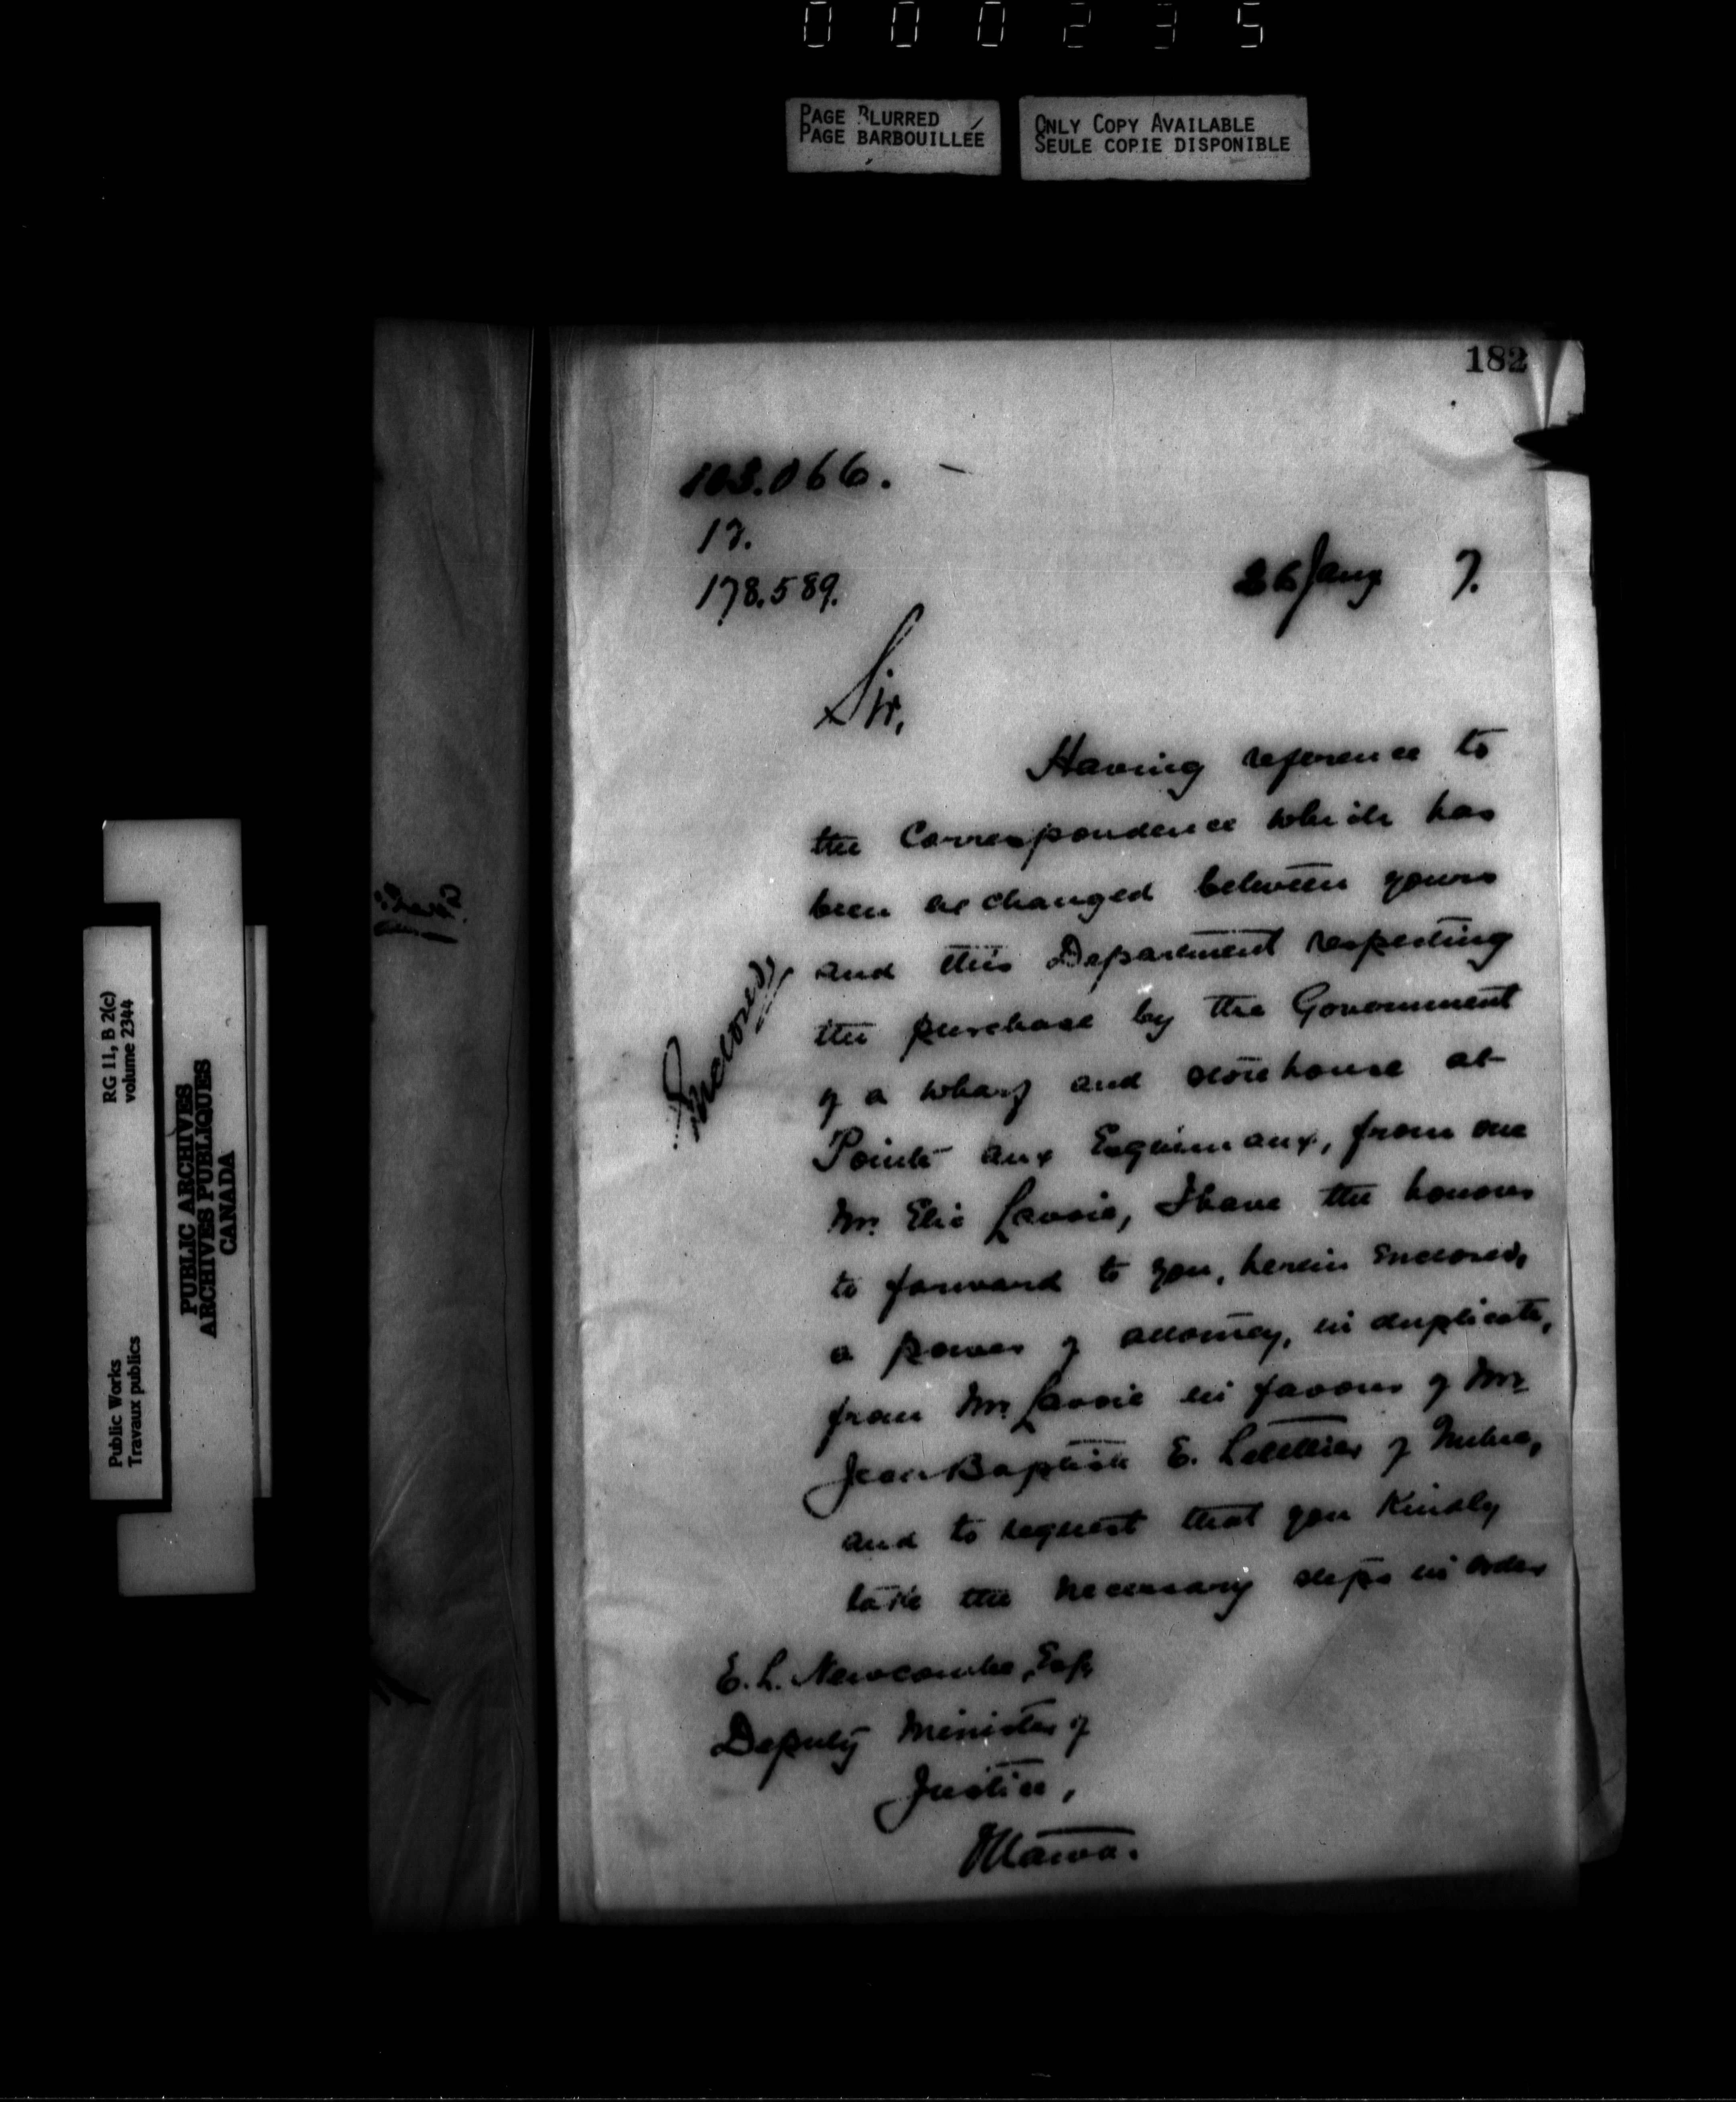 000235
PAGE BLURRED
PAGE BARBOUILLÉE
ONLY COPY AVAILABLE
SEULE COPIE DISPONIBLE
182
103.066.
17.
178.589.
26 Jany 7.
Sir,
Having reference to
the Correspondence which has
been exchanged between yours
and this Department respecting
the purchase by the Government
of a wharf and storehouse at
Pointe aux Esquimaux, from one
Mr. Elie Lavoie, I have the honour
to forward to you, herein enclosed,
a power of attorney, in duplicate,
from Mr. Lavoie in favour of Mr.
Jean Baptiste E. Letellier of
and to request that you Kindly
take the necessary steps in order
Enclosed
E. L. Newcombe, Esq,
Deputy Minister of
Justice,
Ottawa.
RG 11, B 2(c)
volume 2344
Public Works
Travaux publics
PUBLIC ARCHIVES
ARCHIVES PUBLIQUES
CANADA